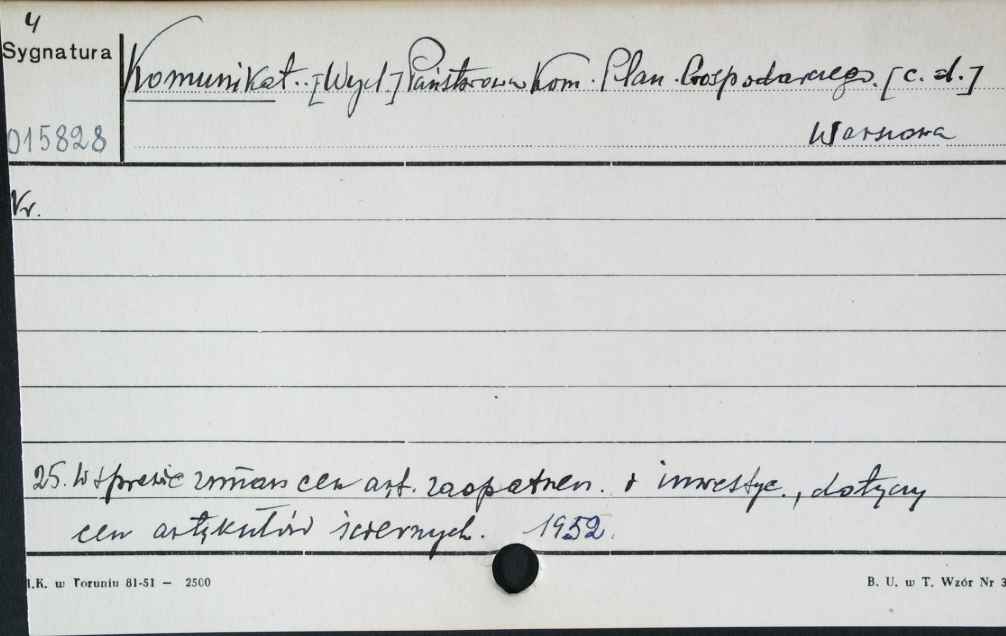 4
Sygnatura
Komunikat. [Wyd.] Państwowa Kom. Plan. Gospodarczego. [c. d.]
015828
Warszawa
Nr.
25. W sprawie zmian cen art. zaopatrzen. i inwestyc., dotyczy
cen artykułów ściernych. 1952.
I.K. w Toruniu 81-51 — 2500
B. U. w T. Wzór Nr 3